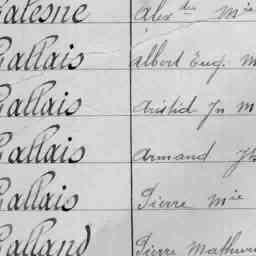 Galesne Alexdre Mie
Gallais Albert Eug. M
Gallais Aristid Jn M
Gallais Armand
Gallais Pierre Mie
Galland Pierre Mathuri